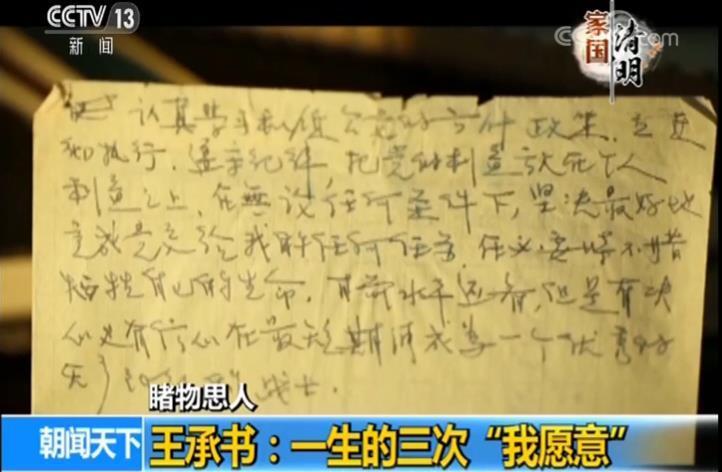 CCTV 13
新闻
家国清明
认真学习和领会党的方针政策,
和执行,遵守纪律,把党的利益放在个人
利益之上,在無论任何条件下,坚决最好地
完成党交给我的任何任务,必要时不惜
牺牲自己的生命,目前水平还,但是有决
心也有信心在最短期间成为一个优秀的
战士.
睹物思人
朝闻天下
王承书：一生的三次“我愿意”